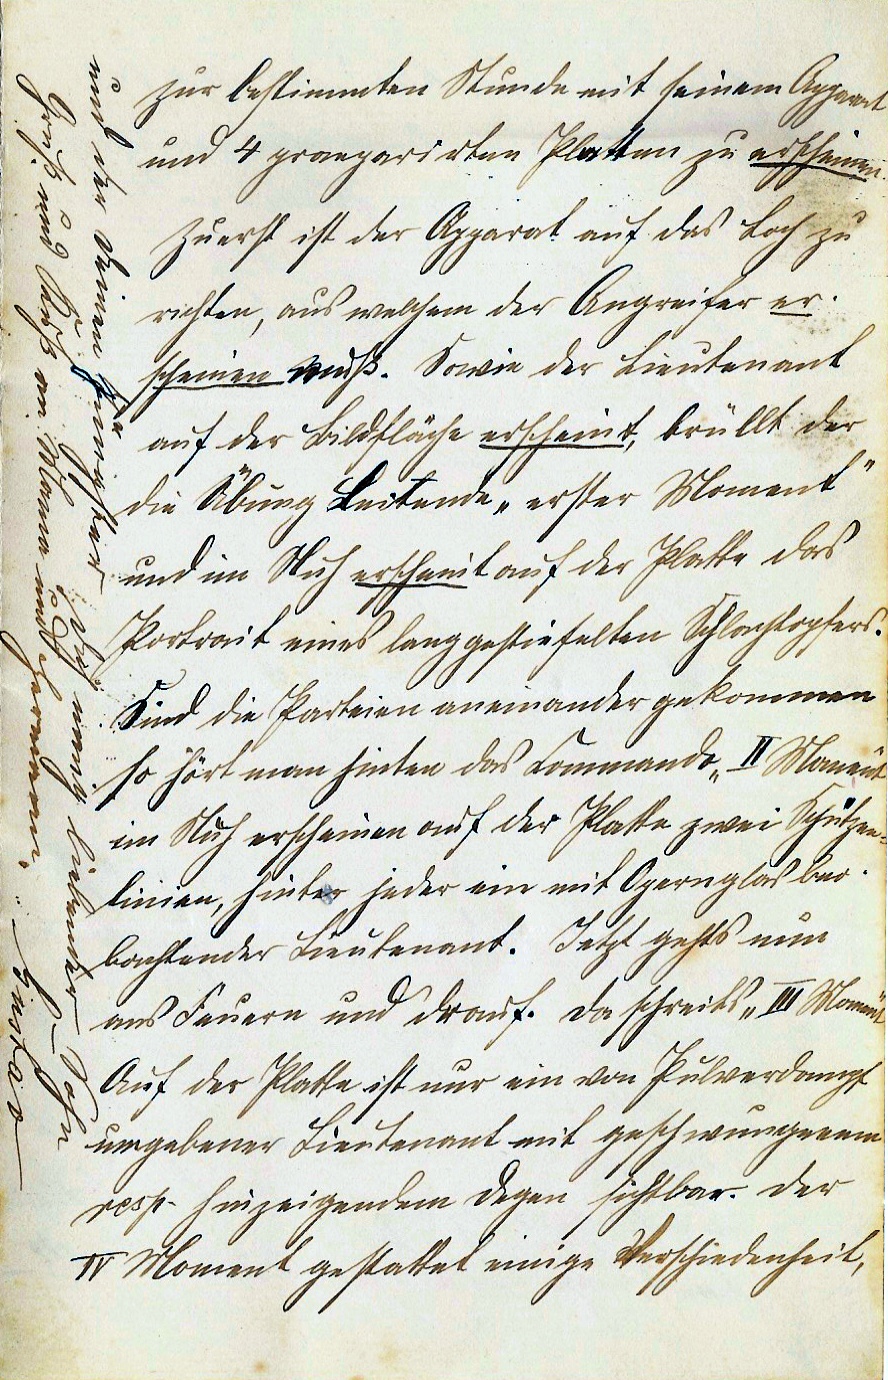 zur bestimmten Stunde mit seinem Apparat
und 4 praeparirten Platten zu erscheinen.
Zuerst ist der Apparat auf das Loch zu
richten, aus welchem der Angreifer er-
scheinen muß. Sowie der Lieutenant
auf der Bildfläche erscheint, brüllt der
die Übung Leitende „erster Moment"
und im Nuh erscheint auf der Platte das
Portrait eines langgestiefelten Schlachtopfers.
Sind die Parteien aneinander gekommen
so hört man hinten das Commando „II Moment"
im Nuh erscheinen auf der Platte zwei Schützen-
linien, hinter jeder ein mit Opernglas beo-
bachtender Lieutenant. Jetzt gehts nun
ans Feuern und drauf. Da schreits „III Moment"
Auf der Platte ist nur ein von Pulverdampf
umgebener Lieutenant mit geschwungenem
resp. hinzeigendem Degen sichtbar. Der
IV Moment gestattet einige Verschiedenheit,
und der Deinen Dich innig liebender Sohn
Gruß und Kuß an Mama und Hermann.
Gustav